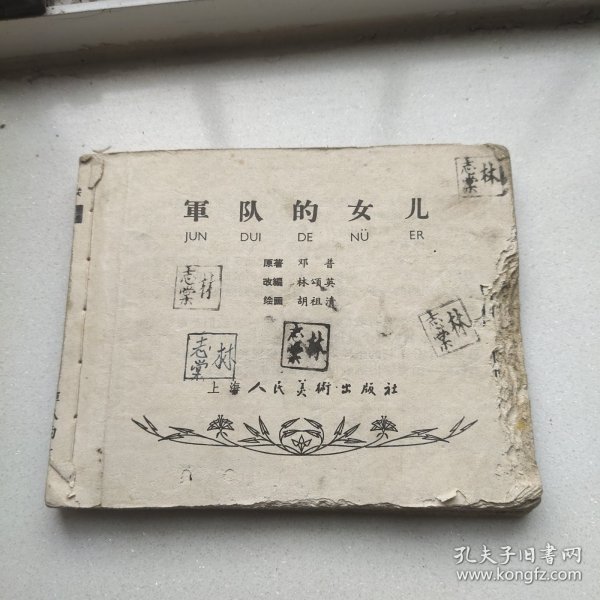 軍队的女儿
JUN DUI DE NÜ ER
原著 邓普
改編 林頌英
绘画 胡祖清
上海人民美術出版社
林志棠
林志棠
林志棠
林志棠
林志棠
孔夫子旧書网
www.kongfz.com